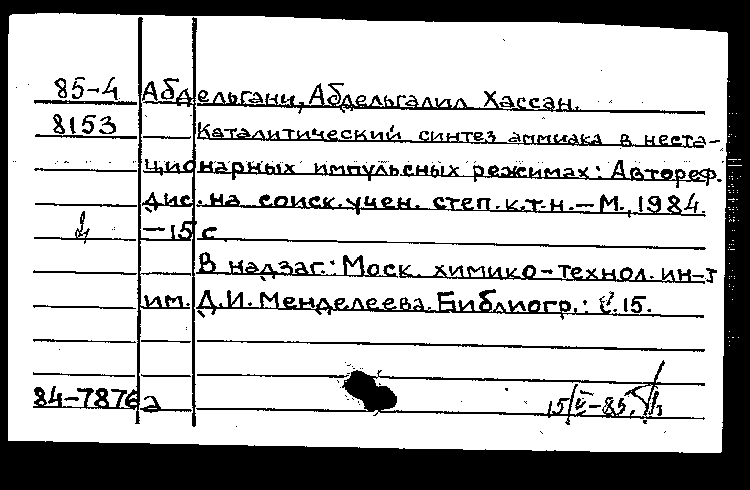 85-4 Абдельгани, Абдельгалил Хассан.
8153 Каталитический синтез аммиака в неста-
ционарных импульсных режимах: Автореф.
дис. на соиск. учен. степ. к.т.н. - М., 1984.
-15 с
В надзаг.: Моск. химико-технол. ин-т
им. Д.И. Менделеева. Библиогр.: с. 15.
84-7876а